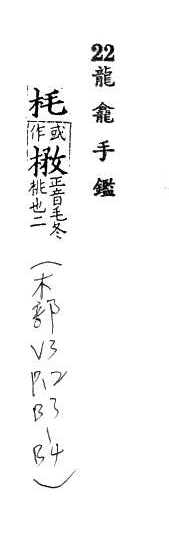 22龍龕手鑑
枆
或作
正音毛冬
桃也二
(木部
V3
P.2
B3
B4)